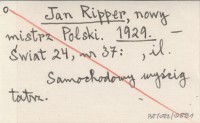 Jan Ripper, nowy
mistrz Polski. 1929. —
Świat 24, nr 37: , il.
Samochodowy wyścig
tatrz.